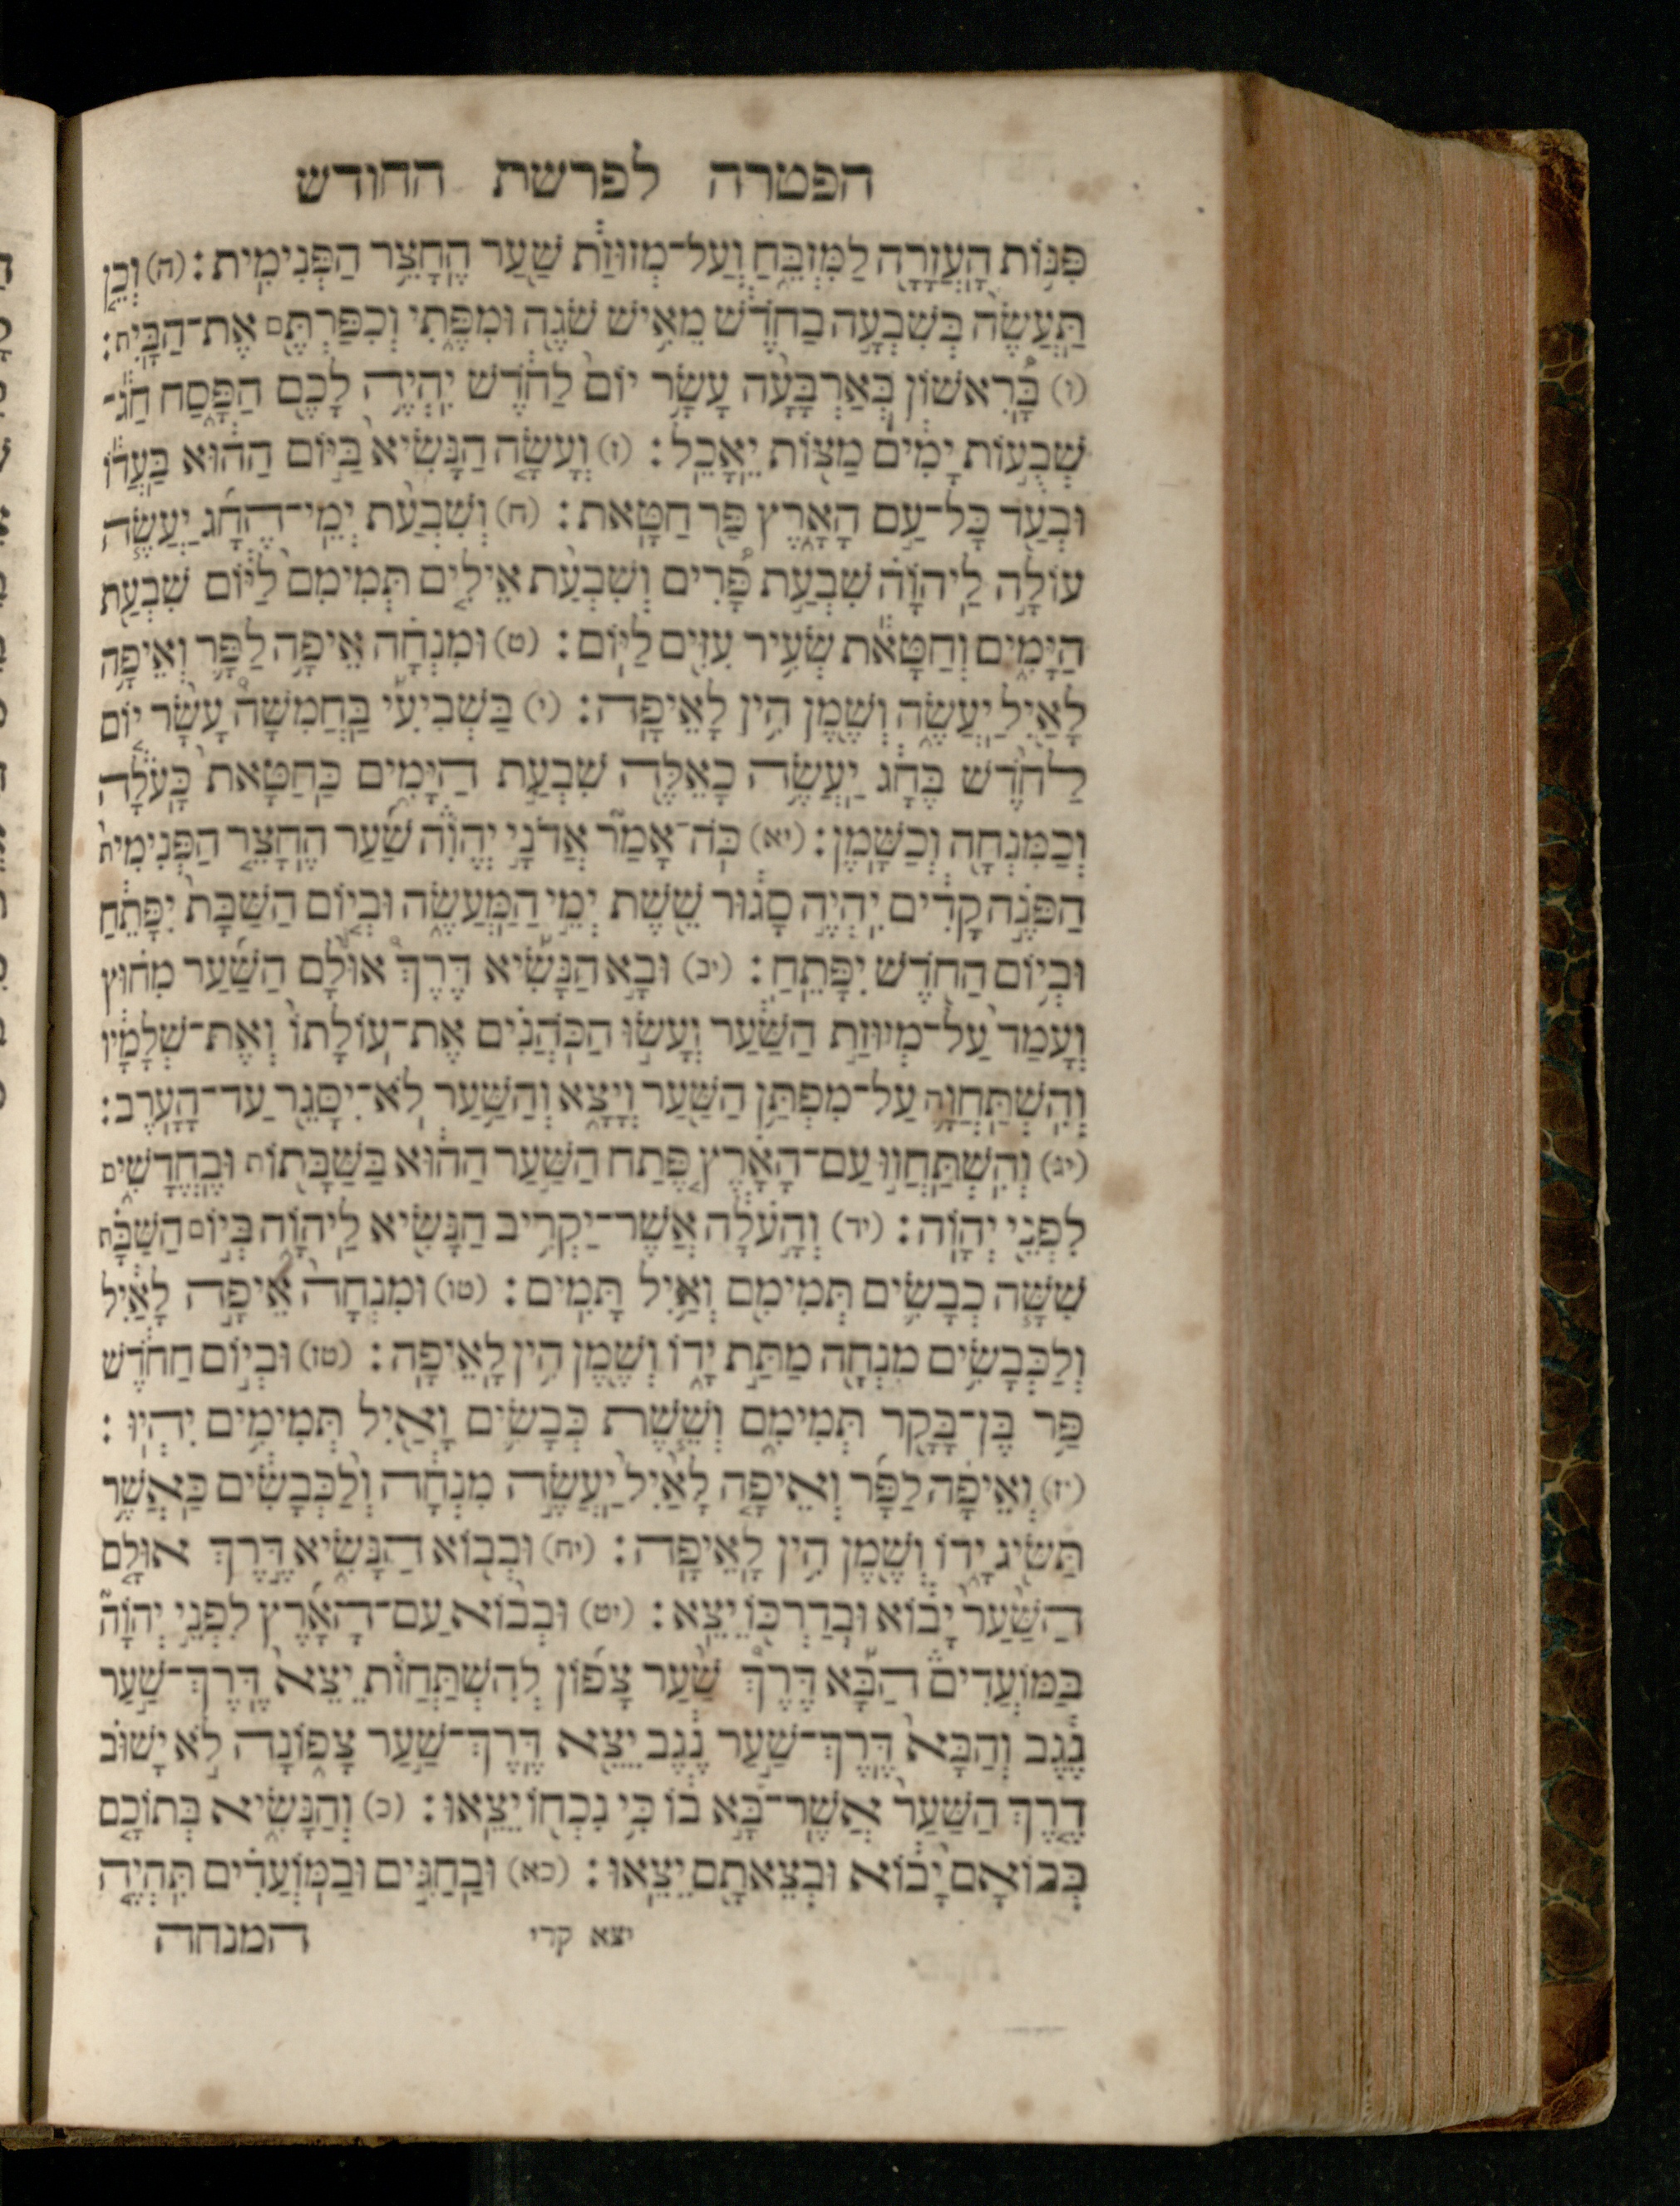 הפטרה לפרשת החודש
פִּנּ֥וֹת הָעֲזָרָ֖ה לַמִּזְבֵּ֑חַ וְעַ֨ל־מְזוּזַ֔ת שַׁ֖עַר הֶחָצֵ֥ר הַפְּנִימִֽית׃ (ה) וְכֵ֤ן
תַּֽעֲשֶׂה֙ בְּשִׁבְעָ֣ה בַחֹ֔דֶשׁ מֵאִ֥ישׁ שֹׁגֶ֖ה וּמִפֶּ֑תִי וְכִפַּרְתֶּ֖ם אֶת־הַבָּֽיִת׃
(ו) בָּ֠רִאשׁוֹן בְּאַרְבָּעָ֨ה עָשָׂ֥ר יוֹם֙ לַחֹ֔דֶשׁ יִֽהְיֶ֥ה לָכֶ֖ם הַפָּ֑סַח חַ֕ג־
שְׁבֻע֣וֹת יָמִ֔ים מַצּ֖וֹת יֵֽאָכֵֽל׃ (ז) וְעָשָׂ֤ה הַנָּשִׂיא֙ בַּיּ֣וֹם הַה֔וּא בַּֽעֲד֕וֹ
וּבְעַ֖ד כָּל־עַ֣ם הָאָ֑רֶץ פַּ֖ר חַטָּֽאת׃ (ח) וְשִׁבְעַ֨ת יְמֵֽי־הֶחָ֜ג יַעֲשֶׂ֧ה
עוֹלָ֣ה לַֽיהוָֹ֗ה שִׁבְעַ֣ת פָּ֠רִים וְשִׁבְעַ֨ת אֵילִ֤ים תְּמִימִם֙ לַיּ֔וֹם שִׁבְעַ֖ת
הַיָּמִ֑ים וְחַטָּ֕את שְׂעִ֥יר עִזִּ֖ים לַיּֽוֹם׃ (ט) וּמִנְחָ֗ה אֵיפָ֥ה לַפָּ֛ר וְאֵיפָ֥ה
לָאַ֖יִל יַֽעֲשֶׂ֑ה וְשֶׁ֖מֶן הִ֥ין לָֽאֵיפָֽה׃ (י) בַּשְּׁבִיעִ֡י בַּֽחֲמִשָּׁה֩ עָשָׂ֨ר י֤וֹם
לַחֹ֙דֶשׁ֙ בֶּחָ֔ג יַֽעֲשֶׂ֥ה כָאֵ֖לֶּה שִׁבְעַ֣ת הַיָּמִ֑ים כַּֽחַטָּאת֙ כָּֽעֹלָ֔ה
וְכַמִּנְחָ֖ה וְכַשָּֽׁמֶן׃ (יא) כֹּֽה־אָמַר֮ אֲדֹנָ֣י יְהֹוִה֒ שַׁ֜עַר הֶֽחָצֵ֤ר הַפְּנִימִית֙
הַפֹּנֶ֣ה קָדִ֔ים יִֽהְיֶ֣ה סָג֔וּר שֵׁ֖שֶׁת יְמֵ֣י הַֽמַּעֲשֶׂ֑ה וּבְי֤וֹם הַשַּׁבָּת֙ יִפָּתֵ֔חַ
וּבְי֥וֹם הַחֹ֖דֶשׁ יִפָּתֵֽחַ׃ (יב) וּבָ֣א הַנָּשִׂ֡יא דֶּרֶךְ֩ אוּלָ֨ם הַשַּׁ֜עַר מִח֗וּץ
וְעָמַד֙ עַל־מְזוּזַ֣ת הַשַּׁ֔עַר וְעָשׂ֣וּ הַכֹּֽהֲנִ֗ים אֶת־עֽוֹלָתוֹ֙ וְאֶת־שְׁלָמָ֔יו
וְהִֽשְׁתַּחֲוָ֛ה עַל־מִפְתַּ֥ן הַשַּׁ֖עַר וְיָצָ֑א וְהַשַּׁ֥עַר לֹֽא־יִסָּגֵ֖ר עַד־הָעָֽרֶב׃
(יג) וְהִשְׁתַּֽחֲו֣וּ עַם־הָאָ֗רֶץ פֶּ֚תַח הַשַּׁ֣עַר הַה֔וּא בַּשַּׁבָּת֖וֹת וּבֶֽחֳדָשִׁ֑ים
לִפְנֵ֖י יְהוָֹֽה׃ (יד) וְהָ֣עֹלָ֔ה אֲשֶׁר־יַקְרִ֥ב הַנָּשִׂ֖יא לַֽיהוָֹ֑ה בְּי֣וֹם הַשַּׁבָּ֗ת
שִׁשָּׁ֧ה כְבָשִׂ֛ים תְּמִימִ֖ם וְאַ֥יִל תָּמִֽים׃ (טו) וּמִנְחָה֙ אֵיפָ֣ה לָאַ֔יִל
וְלַכְּבָשִׂ֥ים מִנְחָ֖ה מַתַּ֣ת יָד֑וֹ וְשֶׁ֖מֶן הִ֥ין לָֽאֵיפָֽה׃ (טז) וּבְי֣וֹם הַחֹ֔דֶשׁ
פַּ֥ר בֶּן־בָּקָ֖ר תְּמִימִ֑ם וְשֵׁ֧שֶׁת כְּבָשִׂ֛ים וָאַ֖יִל תְּמִימִ֥ים יִֽהְיֽוּ׃
(יז) וְאֵיפָ֨ה לַפָּ֜ר וְאֵיפָ֤ה לָאַ֙יִל֙ יַֽעֲשֶׂ֣ה מִנְחָ֔ה וְלַ֨כְּבָשִׂ֔ים כַּֽאֲשֶׁ֥ר
תַּשִּׂ֖יג יָד֑וֹ וְשֶׁ֖מֶן הִ֥ין לָֽאֵיפָֽה׃ (יח) וּבְב֖וֹא הַנָּשִׂ֑יא דֶּ֣רֶךְ אוּלָ֤ם
הַשַּׁ֙עַר֙ יָב֔וֹא וּבְדַרְכּ֖וֹ יֵצֵֽא׃ (יט) וּבְב֨וֹא עַם־הָאָ֜רֶץ לִפְנֵ֣י יְהוָֹה֮
בַּמּֽוֹעֲדִים֒ הַבָּ֡א דֶּרֶךְ֩ שַׁ֨עַר צָפ֜וֹן לְהִשְׁתַּחֲוֹ֗ת יֵצֵא֙ דֶּֽרֶךְ־שַׁ֣עַר
נֶ֔גֶב וְהַבָּא֙ דֶּֽרֶךְ־שַׁ֣עַר נֶ֔גֶב יֵצֵ֖א דֶּֽרֶךְ־שַׁ֣עַר צָפ֑וֹנָה לֹ֣א יָשׁ֗וּב
דֶּ֤רֶךְ הַשַּׁ֙עַר֙ אֲשֶׁר־בָּ֣א ב֔וֹ כִּ֥י נִכְח֖וֹ יֵצֵֽאוּ׃ (כ) וְהַנָּשִׂ֑יא בְּתוֹכָ֤ם
בְּבוֹאָם֙ יָב֔וֹא וּבְצֵאתָ֖ם יֵצֵֽאוּ׃ (כא) וּבַֽחַגִּ֣ים וּבַמּֽוֹעֲדִ֗ים תִּֽהְיֶ֤ה
יצא קרי המנחה